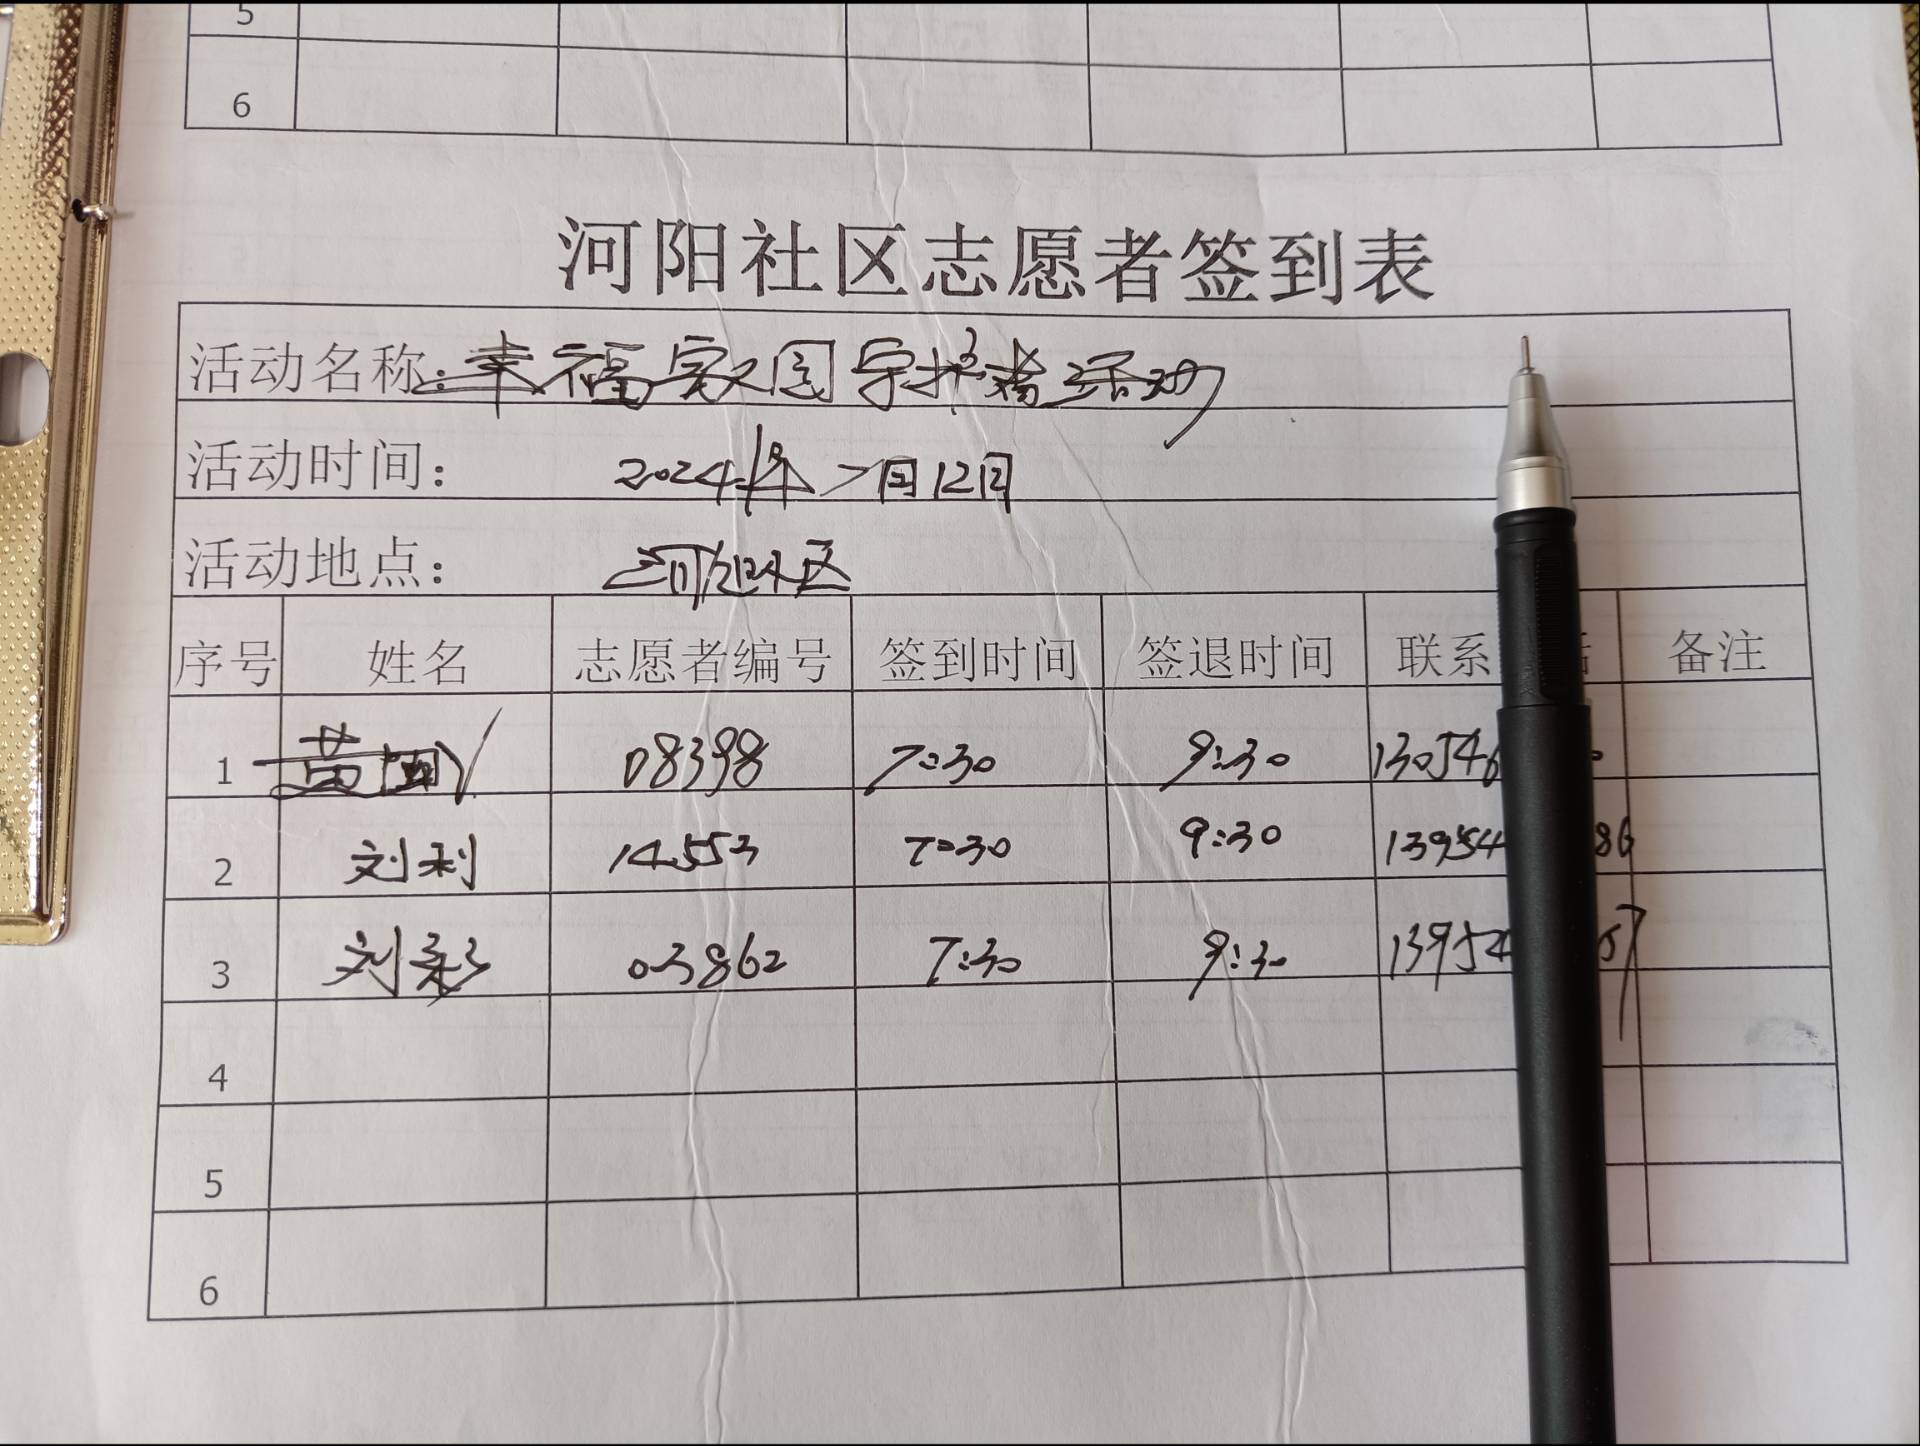 5
6
河阳社区志愿者签到表
活动名称：幸福家园守护者活动
活动时间： 2024年7月12日
活动地点： 河阳社区
序号 姓名 志愿者编号 签到时间 签退时间 联系 备注
1 08398 7:30 9:30 130546
2 刘利 14553 7:30 9:30 13954 86
3 刘彩 03862 7:30 9:30 13954 57
4
5
6